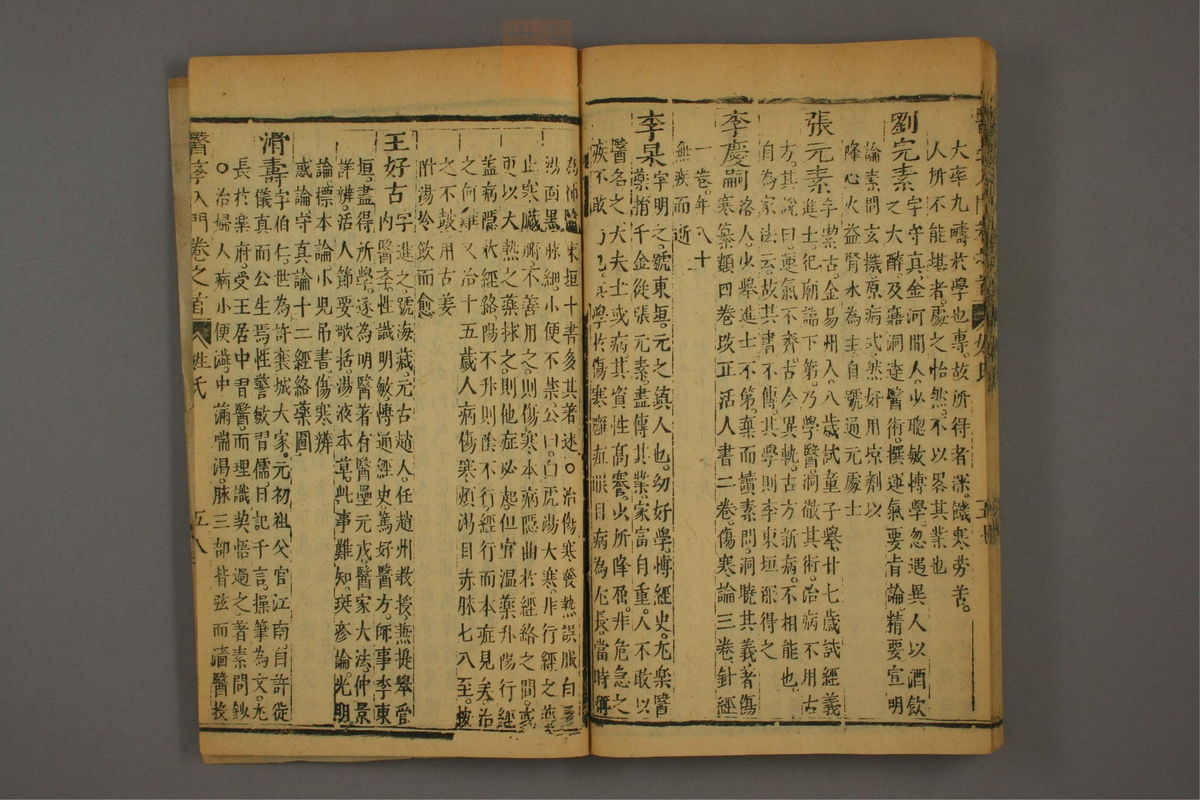 大率九疇於學也專故所得者深饑寒勞苦。
人所不能堪者。處之怡然。不以畧其業也
劉完素 字守真。金河間人。少聰敏博學。忽遇異人以酒飲
之大醉。及寤洞達醫術。撰運氣要旨論。精要宣明
論。素問玄機原病式。然好用凉劑以
降心火益腎水為主。自號通元處士
張元素 字潔古。金易州人。八歲試童子舉。廿七歲試經義
進士。犯廟諱下第。乃學醫。洞徹其術。治病不用古
方。其說曰。運氣不齊。古今異軌。古方新病。不相能也。
自為家法云。故其書不傳。其學則李東垣深得之
李慶嗣 洺人。少舉進士不第。棄而讀素問。洞曉其義。著傷
寒纂類四卷。攷正活人書二卷。傷寒論三卷。針經
一卷。年八十
無疾而逝
李杲 字明之。號東垣。元之鎮人也。幼好學。博經史。尤樂醫
藥。捐千金從張元素。盡傳其業。家富自重。人不敢以
醫名之。大夫士或病其資性高謇。少所降屈。非危急之
疾不敢 學於傷寒癰疽眼目病為尤長。當時稱
為神醫。東垣十書多其著述。○治傷寒發熱。誤服白
湯面黑脉細。小便不禁。公曰。白虎湯大寒。非行經之藥。
止寒臟腑。不善用之。則傷寒本病隱曲於經絡之間。或
更以大熱之藥捄之。則他症必起。但宜溫藥升陽行經
蓋病隱於經絡。陽不升則陰不行。經行而本症見矣。治
之何難。又治十五歲人病傷寒。煩渴目赤。脉七八至。按
之不鼓。用古姜
附湯冷飲而愈
王好古 字進之。號海藏。元古趙人。任趙州教授。兼提舉管
內醫學。性識明敏。博通經史。篤好醫方。師事李東
垣。盡得所學。遂為明醫。著有醫壘元戎。醫家大法。仲景
詳辨。活人節要歌括。湯液本草。此事難知。斑疹論。光明
論。標本論。小兒吊書。傷寒辨
惑論。守真論。十二經絡藥圖
滑壽 字伯仁。世為許襄城大家。元初祖父官江南。自許徙
儀真而公生焉。性警敏習儒。日記千言。操筆為文。尤
長於樂府。受王居中習醫。而理識契悟過之。著素問鈔
○治婦人病小便澁。中滿喘渴。脉三部皆弦而澁。醫投
醫學入門 卷之首 姓氏 五八